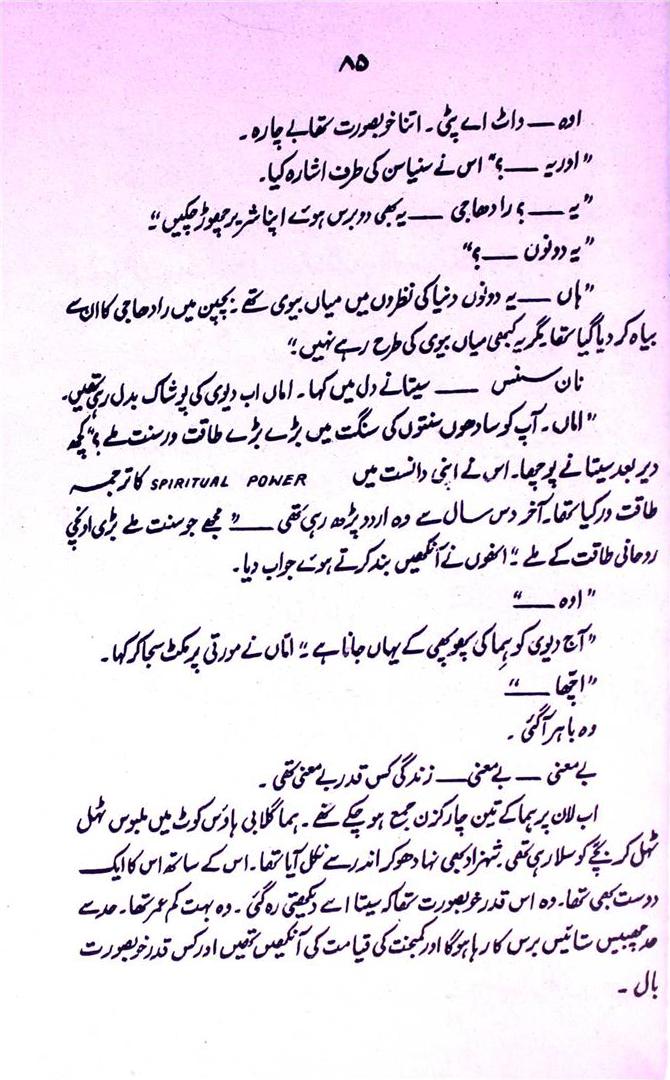 ۸۵
اوہ — واٹ اے پٹی۔ اتنا خوبصورت تھا بے چارہ۔
”اور یہ —؟“ اس نے سنیاسن کی طرف اشارہ کیا۔
”یہ —؟ رادھا جی — یہ بھی دو برس ہوئے اپنا شریر چھوڑ چکیں“۔
”یہ دونوں —؟“
”ہاں — یہ دونوں دنیا کی نظروں میں میاں بیوی تھے۔ بچپن میں رادھا جی کا ان سے
بیاہ کر دیا گیا تھا۔ مگر یہ کبھی میاں بیوی کی طرح رہے نہیں“۔
نان سنس — سیتا نے دل میں کہا۔ اماں اب دیوی کی پوشاک بدل رہی تھیں۔
”اماں۔ آپ کو سادھوں سنتوں کی سنگت میں بڑے بڑے طاقت ور سنت ملے؟“ کچھ
دیر بعد سیتا نے پوچھا۔ اس نے اپنی دانست میں SPIRITUAL POWER کا ترجمہ
طاقت ور کیا تھا۔ آخر دس سال سے وہ اردو پڑھ رہی تھی — ”مجھے جو سنت ملے بڑی اونچی
روحانی طاقت کے ملے“۔ انھوں نے آنکھیں بند کرتے ہوئے جواب دیا۔
”اوہ —“
”آج دیوی کو ہِما کی پھوپھی کے یہاں جانا ہے“۔ امّاں نے مورتی پر مکٹ سجا کر کہا۔
”اچّھا —“
وہ باہر آگئی۔
بے معنی — بے معنی — زندگی کس قدر بے معنی تھی۔
اب لان پر ہما کے تین چار کزن جمع ہو چکے تھے۔ ہما گلابی ہاؤس کوٹ میں ملبوس ٹہل
ٹہل کر بچّے کو سلا رہی تھی۔ شہزاد بھی نہا دھو کر اندر سے نکل آیا تھا۔ اس کے ساتھ اس کا ایک
دوست بھی تھا۔ وہ اس قدر خوبصورت تھا کہ سیتا اسے دیکھتی رہ گئی۔ وہ بہت کم عمر تھا۔ حد سے
حد چھبیس ستائیس برس کا رہا ہوگا اور کمبخت کی قیامت کی آنکھیں تھیں اور کس قدر خوبصورت
بال۔